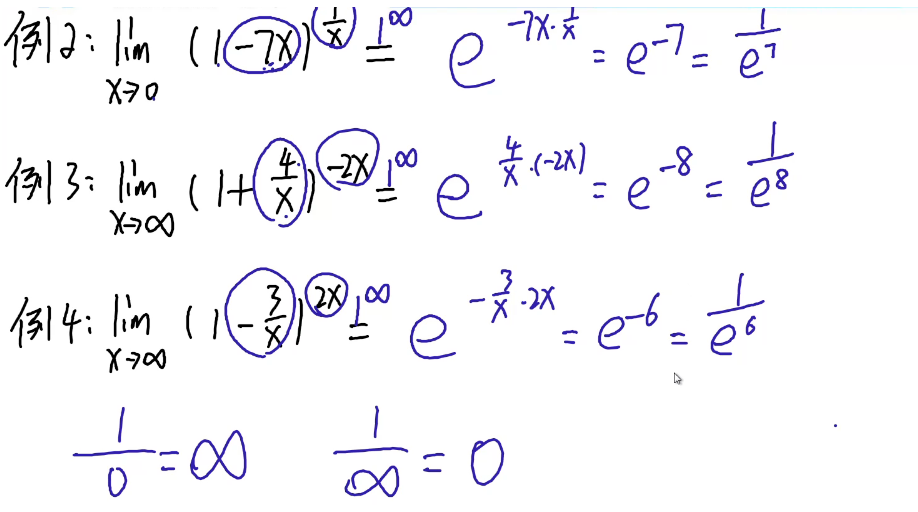 例2: lim x→0 (1-7x)^(1/x) =^(1^∞) e^(-7x·1/x) = e^(-7) = 1/e^7
例3: lim x→∞ (1+4/x)^(-2x) =^(1^∞) e^(4/x·(-2x)) = e^(-8) = 1/e^8
例4: lim x→∞ (1-3/x)^(2x) =^(1^∞) e^(-3/x·2x) = e^(-6) = 1/e^6
1/0 = ∞ 1/∞ = 0